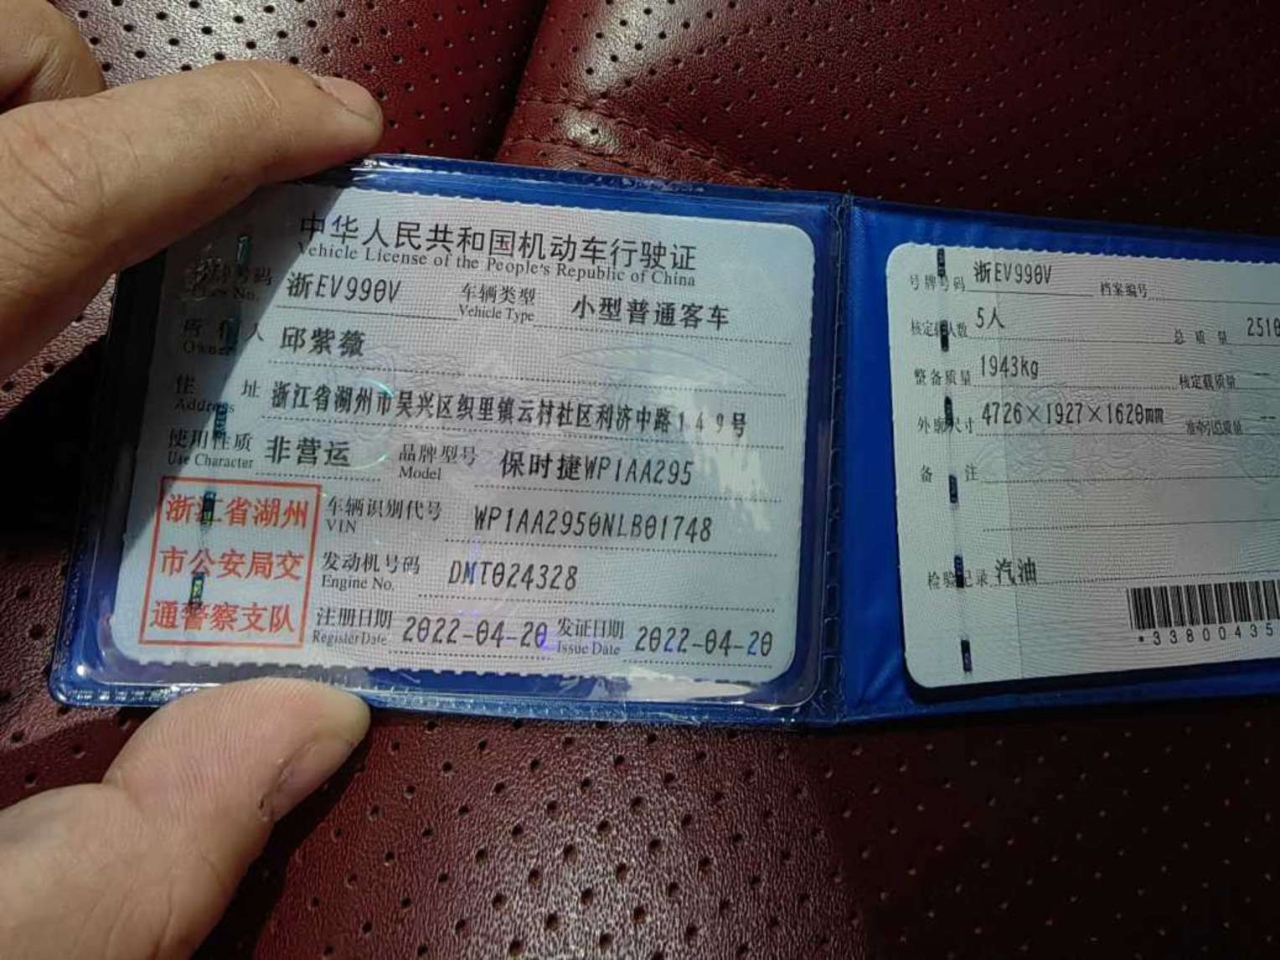 中华人民共和国机动车行驶证
Vehicle License of the People's Republic of China
号码 浙EV990V 车辆类型 小型普通客车
No. Vehicle Type
所有人 邱紫薇
Owner
住址 浙江省湖州市吴兴区织里镇云村社区利济中路149号
Address
使用性质 非营运 品牌型号 保时捷WP1AA295
Use Character Model
浙江省湖州
市公安局交
通警察支队
车辆识别代号 WP1AA2950NLB01748
VIN
发动机号码 DMT024328
Engine No.
注册日期 2022-04-20 发证日期 2022-04-20
Register Date Issue Date
号牌号码 浙EV990V 档案编号
核定载人数 5人 总质量 2510
整备质量 1943kg 核定载质量
外廓尺寸 4726×1927×1620mm 准牵引总质量
备注
检验记录 汽油
*33800435